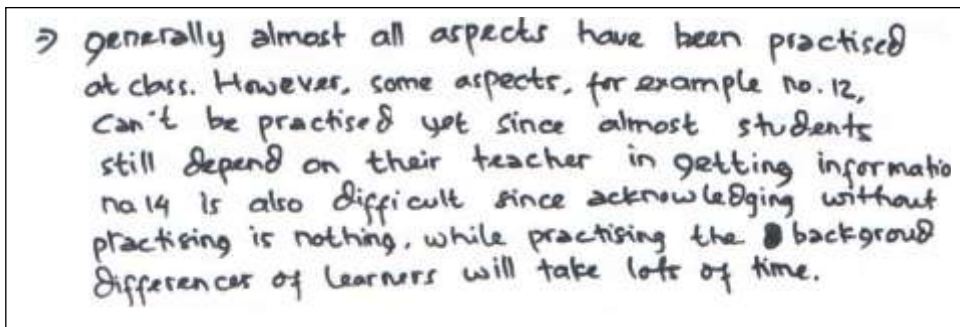 ⇒ generally almost all aspects have been practised
at class. However, some aspects, for example no. 12,
can't be practised yet since almost students
still depend on their teacher in getting informatio
no 14 is also difficult since acknowledging without
practising is nothing, while practising the backgroud
differences of learners will take lots of time.